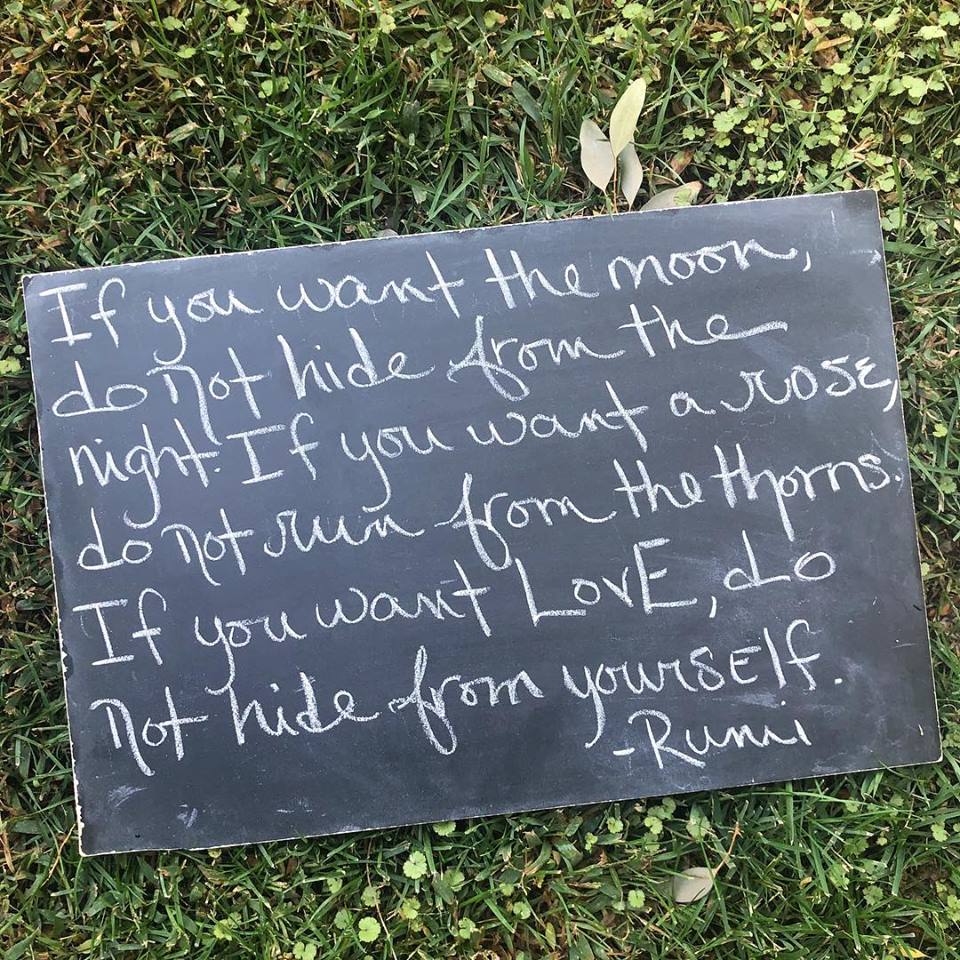 If you want the moon,
do not hide from the
night. If you want a rose,
do not run from the thorns.
If you want LovE, do
not hide from yoursElf.
-Rumi